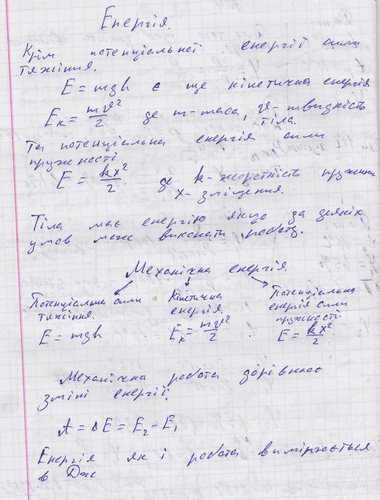 Енергія.
Крім потенціальної енергії сили
тяжіння.
E = mgh є ще кінетична енергія
Eк = mv²/2 де m-маса, v-швидкість
тіла.
Та потенціальна енергія сили
пружності
E = kx²/2 де k-жорсткість пружини
x-зміщення.
Тіла має енергію якщо за деяких
умов може виконати роботу.
Механічна енергія.
Потенціальна сили
тяжіння.
E = mgh
Кінетична
енергія
Eк = mv²/2
Потенціальна
енергія сили
пружності.
E = kx²/2
Механічна робота дорівнює
зміні енергії.
A = ΔE = E₂ - E₁
Енергія як і робота вимірюється
в Дж